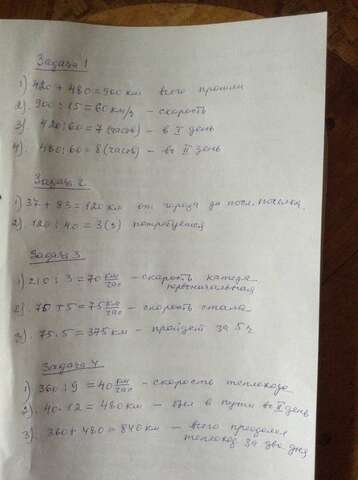 Задача 1
1) 420 + 480 = 900 км всего прошли
2) 900 : 15 = 60 км/ч – скорость
3) 420 : 60 = 7 (часов) – в I день
4) 480 : 60 = 8 (часов) – во II день
Задача 2
1) 37 + 83 = 120 км от города до посл. поселка
2) 120 : 40 = 3 (ч) потребуется
Задача 3
1) 210 : 3 = 70 км/час – скорость катера
первоначальная
2) 70 + 5 = 75 км/час – скорость стала
3) 75 · 5 = 375 км – пройдет за 5 ч
Задача 4
1) 360 : 9 = 40 км/час – скорость теплохода
2) 40 · 12 = 480 км – был в пути во II день
3) 360 + 480 = 840 км – всего преодолел
теплоход за два дня